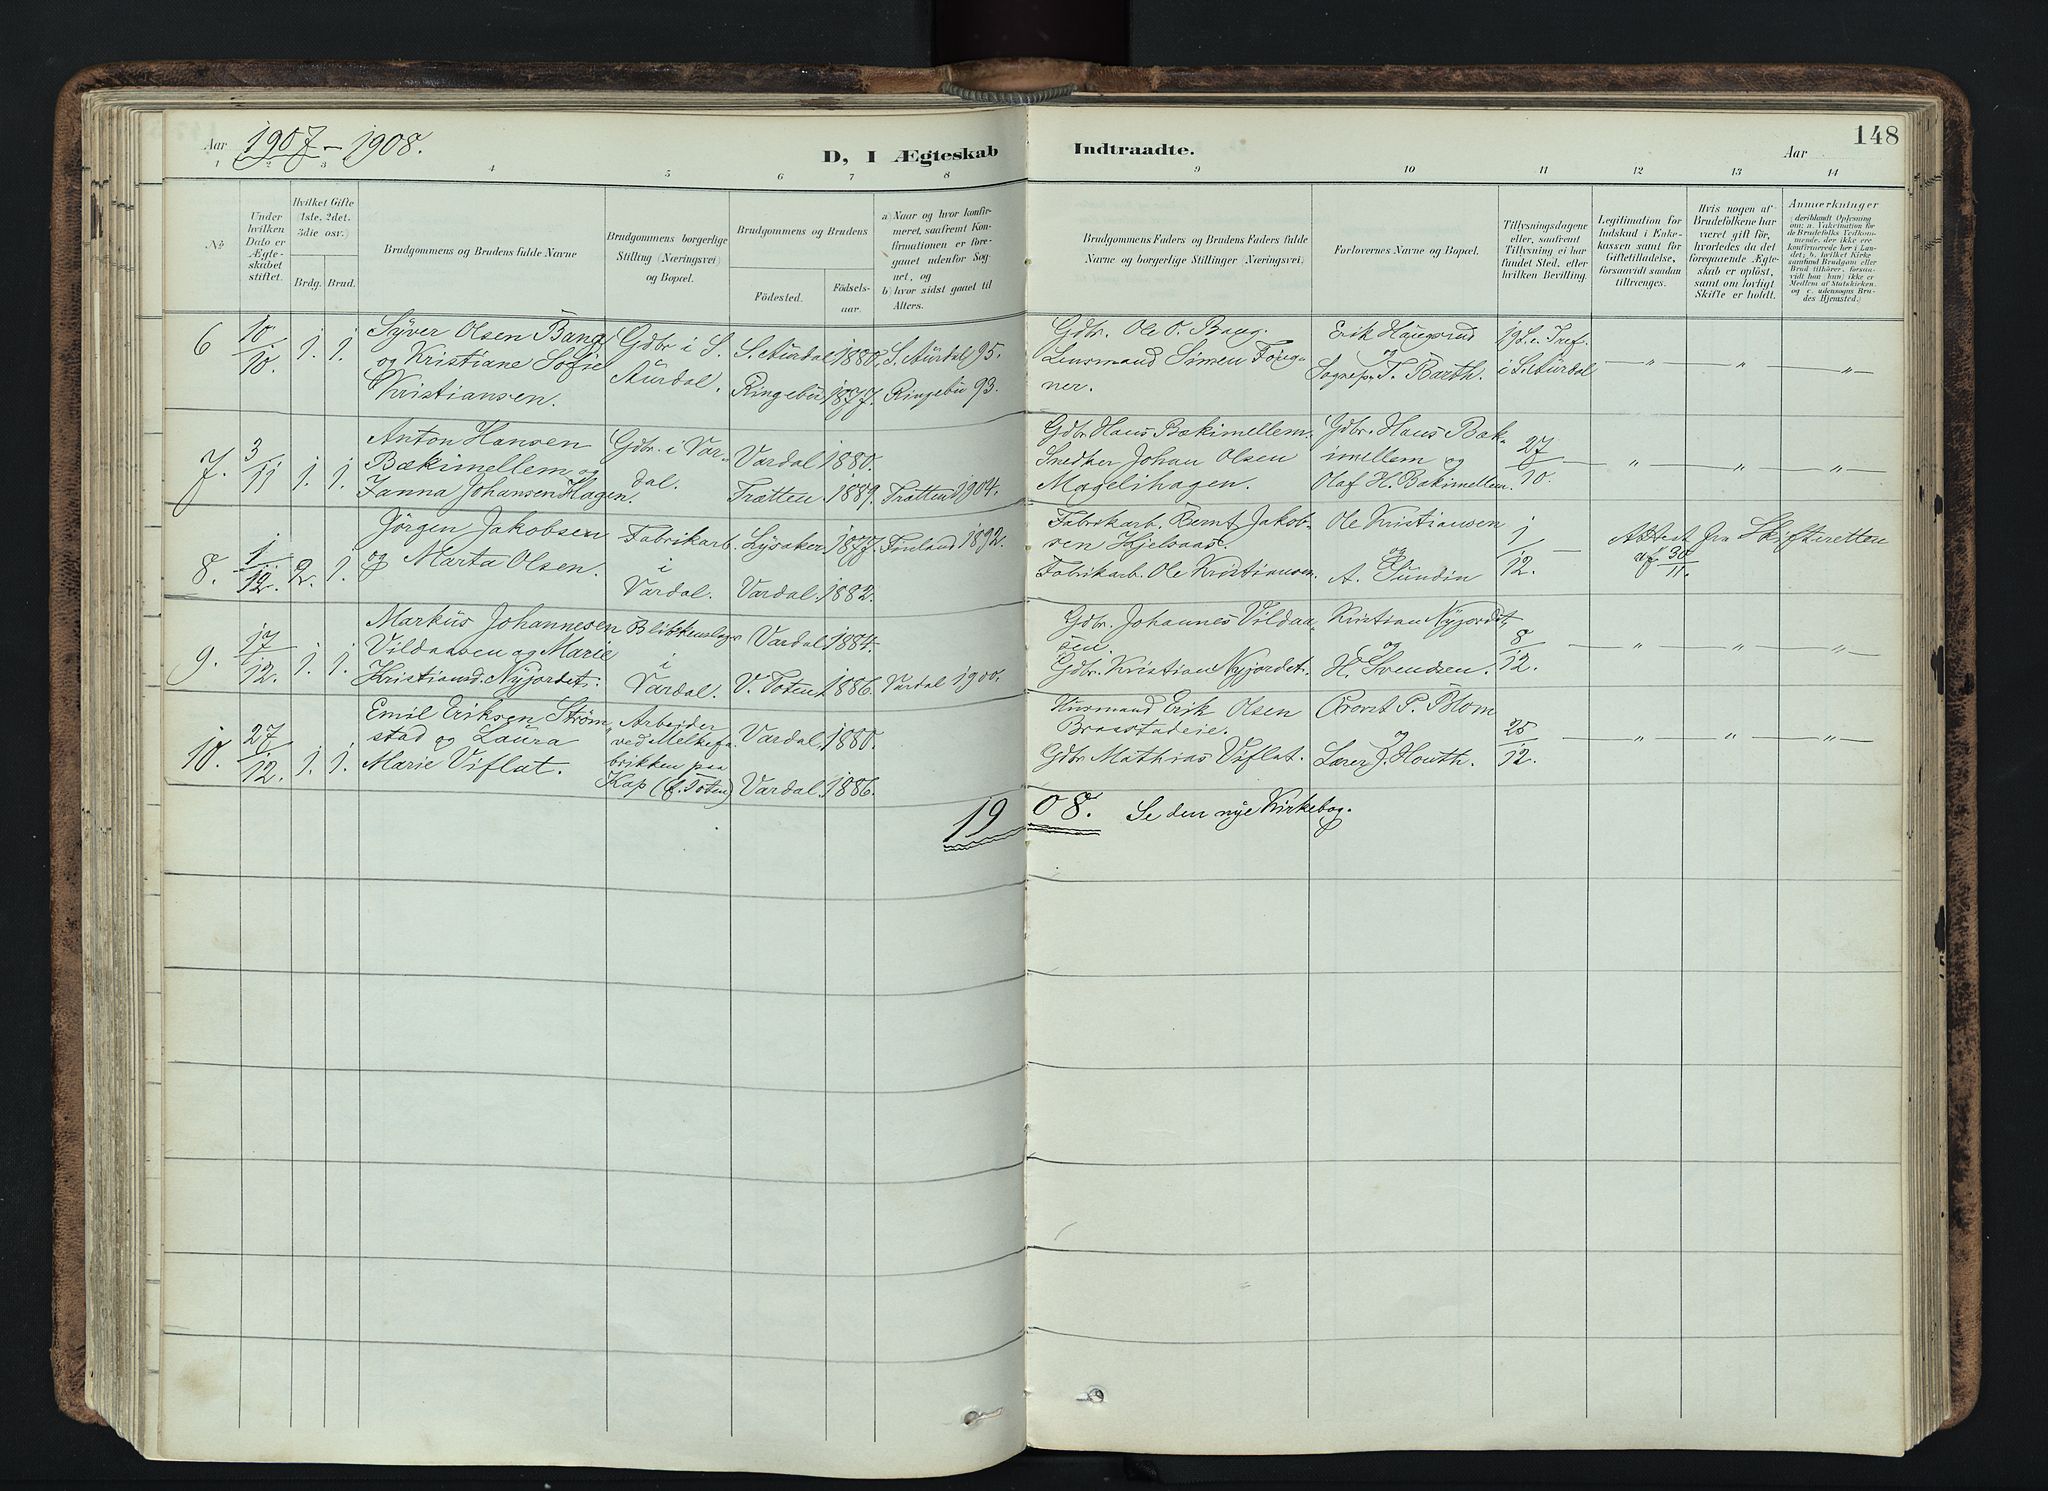 148
Aar 1907 - 1908.
D, I Ægteskab Indtraadte.
Aar
1 2 3 4 5 6 7 8 9 10 11 12 13 14
№
Under hvilken Dato er Ægteskabet stiftet.
Hvilket Gifte (1ste, 2det, 3die osv.)
Brdg. Brud.
Brudgommens og Brudens fulde Navne
Brudgommens borgerlige Stilling (Næringsvei) og Bopæl.
Brudgommens og Brudens
Födested.
Födselsaar.
a) Naar og hvor konfirmeret, saafremt Konfirmationen er foregaaet udenfor Sognet, og
b) hvor sidst gaaet til Alters.
Brudgommens Faders og Brudens Faders fulde Navne og borgerlige Stillinger (Næringsvei)
Forlovernes Navne og Bopæl.
Tillysningsdagene eller, saafremt Tillysning ei har fundet Sted, efter hvilken Bevilling.
Legitimation for Indskud i Enkekassen samt for Giftetilladelse, forsaavidt saadan tiltrænges.
Hvis nogen af Brudefolkene har været gift før, hvorledes da det foregaaende Ægteskab er opløst, samt om lovligt Skifte er holdt.
Anmærkninger (deriblandt Oplysning om: a. Vakcination for de Brudefolks Vedkommende, der ikke ere konfirmerede her i Landet; b. hvilket Kirkesamfund Brudgom eller Brud tilhører, forsaavidt han (hun) ikke er Medlem af Statskirken, og c. udensogns Brudes Hjemsted.)
6 10/10 1. 1. Syver Olsen Bang
og Kristiane Sofie
Kristiansen.
Gdbr i S.
Aurdal.
S. Aurdal 1880, S. Aurdal 95.
Ringebu 1877. Ringebu 93.
Gdbr. Ole O. Bang.
Lensmand Simen Forgner.
Erik Haugsrud
og
Sognep. T. Barth.
19 S. e. Tref.
i S. Aurdal
— „ — „ — „ —
7. 3/11 1. 1. Anton Hansen
Bækimellem og
Janna Johansen Hagen.
Gdbr. i Vardal.
Vardal 1880.
Tratten 1889. Tratten 1904.
Gdbr Hans Bækimellem.
Snedker Johan Olsen
Magelihagen.
Gdbr. Hans Bakimellem og
Olaf H. Bakimellem.
27/10.
— „ — „ — „ —
8. 1/12. 2. 1. Jörgen Jakobsen
og Marta Olsen.
Fabrikarb.
i
Vardal.
Lysaker 1877. Finland 1892.
Vardal. 1882.
Fabrikarb. Bernt Jakobsen Kjelsaas.
Fabrikarb. Ole Kristiansen.
Ole Kristiansen
og
A. Sundin
1/12.
— Attest fra Skifteretten
af 30/11.
9. 17/12. 1. 1. Markus Johannesen
Vildaasen og Marie
Kristiansd. Nyjordet.
Blikkenslager
i
Vardal.
Vardal 1884.
V. Toten 1886. Vardal 1900.
Gdbr. Johannes Vildaasen.
Gdbr. Kristian Nyjordet.
Kristian Nyjordet,
og
H. Svendsen.
8/12.
— „ — „ — „ —
10. 27/12. 1. 1. Emil Eriksen Strömstad og Laura
Marie Viflat.
Arbeider
ved Melkefabrikken paa
Kap (Ö. Toten)
Vardal. 1880.
Vardal. 1886.
Husmand Erik Olsen
Braastadeie.
Gdbr Mathias Viflat.
Provst P. Blom
og
Lærer J. Houth.
25/12.
— „ — „ — „ —
1908. Se den nye Kirkebog.